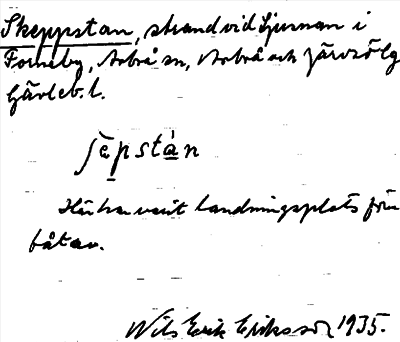 Skeppstan, strand vid Ljusnan i
Forneby, Arbrå sn, Arbrå och Järvsö tg
Gävleb. l.
ʃèpstàn
Här har varit landningsplats för
båtar.
Nils Erik Eriksson 1935.